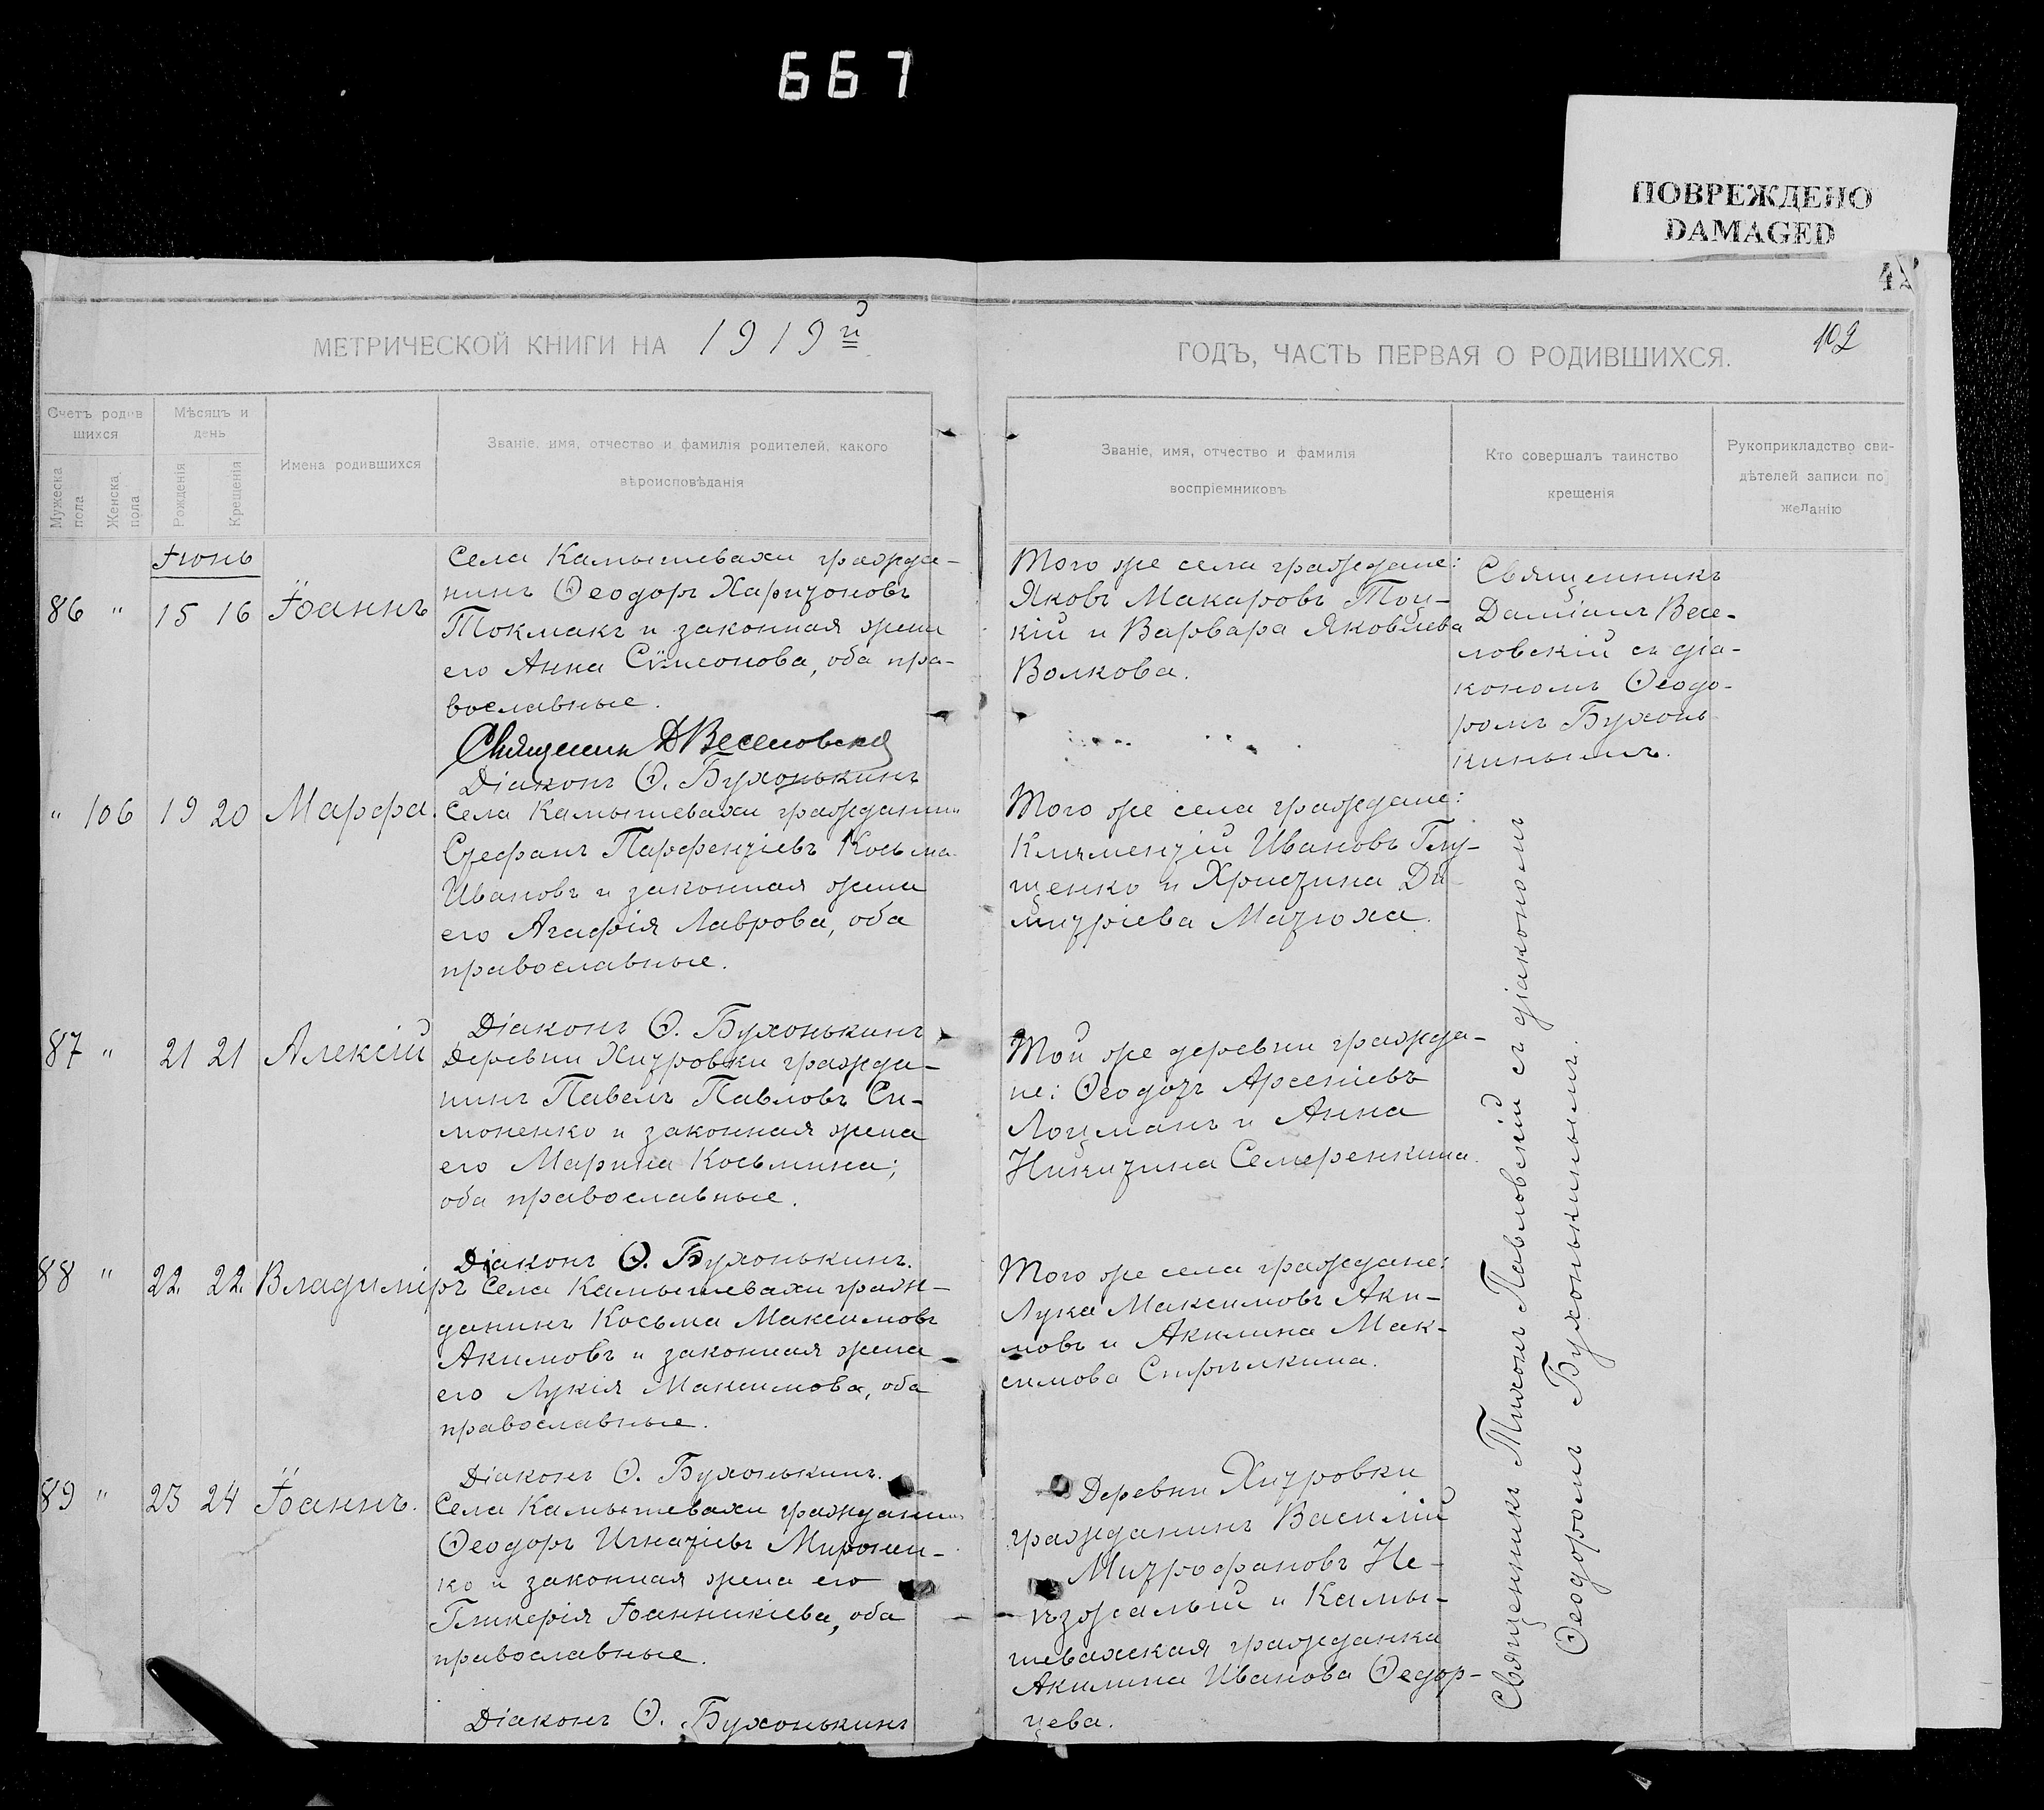 667
ПОВРЕЖДЕНО
DAMAGED
102
МЕТРИЧЕСКОЙ КНИГИ НА 1919й
ГОДЪ, ЧАСТЬ ПЕРВАЯ О РОДИВШИХСЯ.
Счетъ родив
шихся
Мужеска
пола
Женска.
пола
Мѣсяцъ и
день
Рожденія
Крещенія
Имена родившихся
Званіе, имя, отчество и фамилія родителей, какого
вѣроисповѣданія
Званіе, имя, отчество и фамилія
воспріемниковъ
Кто совершалъ таинство
крещенія
Рукоприкладство сви-
дѣтелей записи по
желанію
Іюнь
86 " 15 16 Іоаннъ
Села Камышевахи гражда-
нинъ Ѳеодоръ Харитоновъ
Токмакъ и законная жена
его Анна Сѵмеонова, оба пра-
вославные.
Священникъ Д Веселовскій
Діаконъ Ѳ. Бухонькинъ
Того же села граждане:
Яковъ Макаровъ Тоц-
кій и Варвара Яковлева
Волкова.
Священникъ
Даміанъ Весе-
ловскій съ діа-
кономъ Ѳеодо-
ромъ Бухонь
кинымъ.
" 106 19 20 Марфа.
Села Камышевахи гражданинъ
Стефанъ Парфентіевъ Косьма
Ивановъ и законная жена
его Агафія Лаврова, оба
православные.
Діаконъ Ѳ. Бухонькинъ
Того же села граждане:
Климентій Ивановъ Глу-
щенко и Христина Ди-
митріева Матюха.
87 " 21 21 Алексій
Деревни Хитровки гражда-
нинъ Павелъ Павловъ Си-
моненко и законная жена
его Марина Косьмина;
оба православные.
Діаконъ Ѳ. Бухонькинъ.
Той же деревни гражда-
не: Ѳеодоръ Арсеніевъ
Лоцманъ и Анна
Никитина Семеренкина.
88 " 22. 22. Владиміръ
Села Камышевахи граж-
данинъ Косьма Максимовъ
Акимовъ и законная жена
его Лукія Максимова, оба
православные.
Діаконъ Ѳ. Бухонькинъ.
Того же села граждане:
Лука Максимовъ Аки-
мовъ и Акилина Мак-
симова Стрѣлкина.
89 " 23 24 Іоаннъ.
Села Камышевахи гражданинъ
Ѳеодоръ Игнатіевъ Миронен-
ко и законная жена его
Гликерія Іоанникіева, оба
православные.
Діаконъ Ѳ. Бухонькинъ
Деревни Хитровки
гражданинъ Василій
Митрофановъ Не-
ѣзжалый и Камы-
шевахская гражданка
Акилина Иванова Ѳедор-
цева.
Священникъ Тихонъ Павловскій съ діакономъ
Ѳеодоромъ Бухонькинымъ.